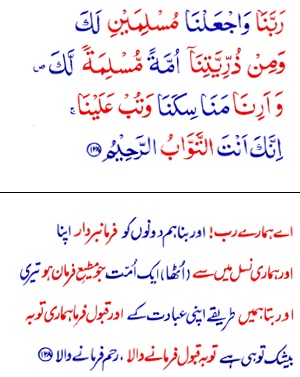 رَبَّنَا وَاجْعَلْنَا مُسْلِمَيْنِ لَكَ
وَمِنْ ذُرِّيَّتِنَاۤ اُمَّةً مُّسْلِمَةً لَّكَ ۪
وَاَرِنَا مَنَاسِكَنَا وَتُبْ عَلَيْنَا ۚ
اِنَّكَ اَنْتَ التَّوَّابُ الرَّحِيْمُ ﴿۱۲۸﴾
اے ہمارے رب! اور بنا ہم دونوں کو فرمانبردار اپنا
اور ہماری نسل میں سے (اُٹھا) ایک اُمّت جو مطیعِ فرمان ہو تیری
اور بتا ہمیں طریقے اپنی عبادت کے اور قبول فرما ہماری توبہ
بیشک تو ہی ہے توبہ قبول فرمانے والا ، رحم فرمانے والا ﴿۱۲۸﴾